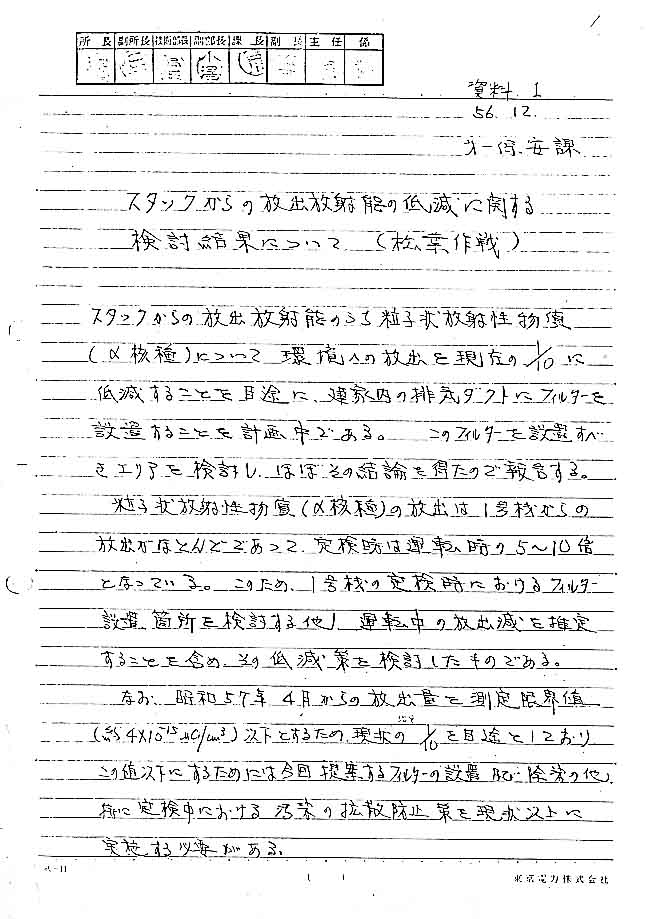 1
所長 副所長 技術部長 副部長 課長 副長 主任 係
資料.1
56.12.
オ一保安課
スタックからの放出放射能の低減に関する
検討結果について (松葉作戦)
スタックからの放出放射能のうち粒子状放射性物質
(α核種)について 環境への放出を現在の1/10に
低減することを目途に、建家内の排気ダクトにフィルターを
設置することを計画中である。 このフィルターを設置すべ
きエリアを検討し、ほぼその結論を得たので報告する。
粒子状放射性物質(α核種)の放出は1号機からの
放出がほとんどであって、定検時は運転時の5〜10倍
となっている。このため、1号機の定検時におけるフィルター
設置箇所を検討する他、運転中の放出減を推定
することを含め、その低減策を検討したものである。
なお、昭和57年4月からの放出量を測定限界値
(約4×10⁻¹⁵μCi/cm³)以下とするため、現状の1/10を目途としており
この値以下にするためには今回提案するフィルターの設置及び除染の他、
特に定検中における汚染の拡散防止策を現状以上に
実施する必要がある。
東京電力株式会社